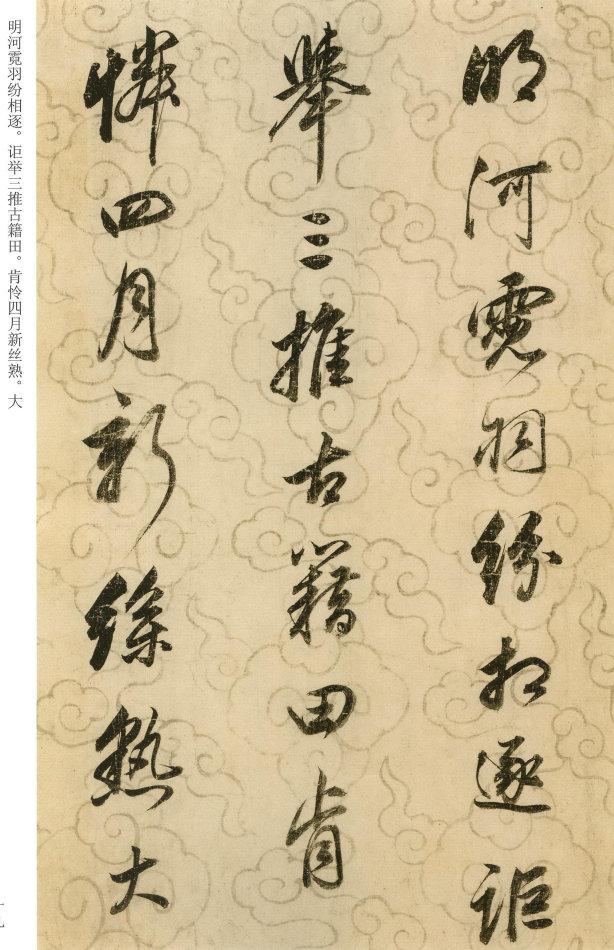 明河霓羽纷相逐。讵举三推古籍田。肯怜四月新丝熟。大
明河霓羽紛相逐詎
舉三推古籍田肯
憐四月新絲熟大
十九